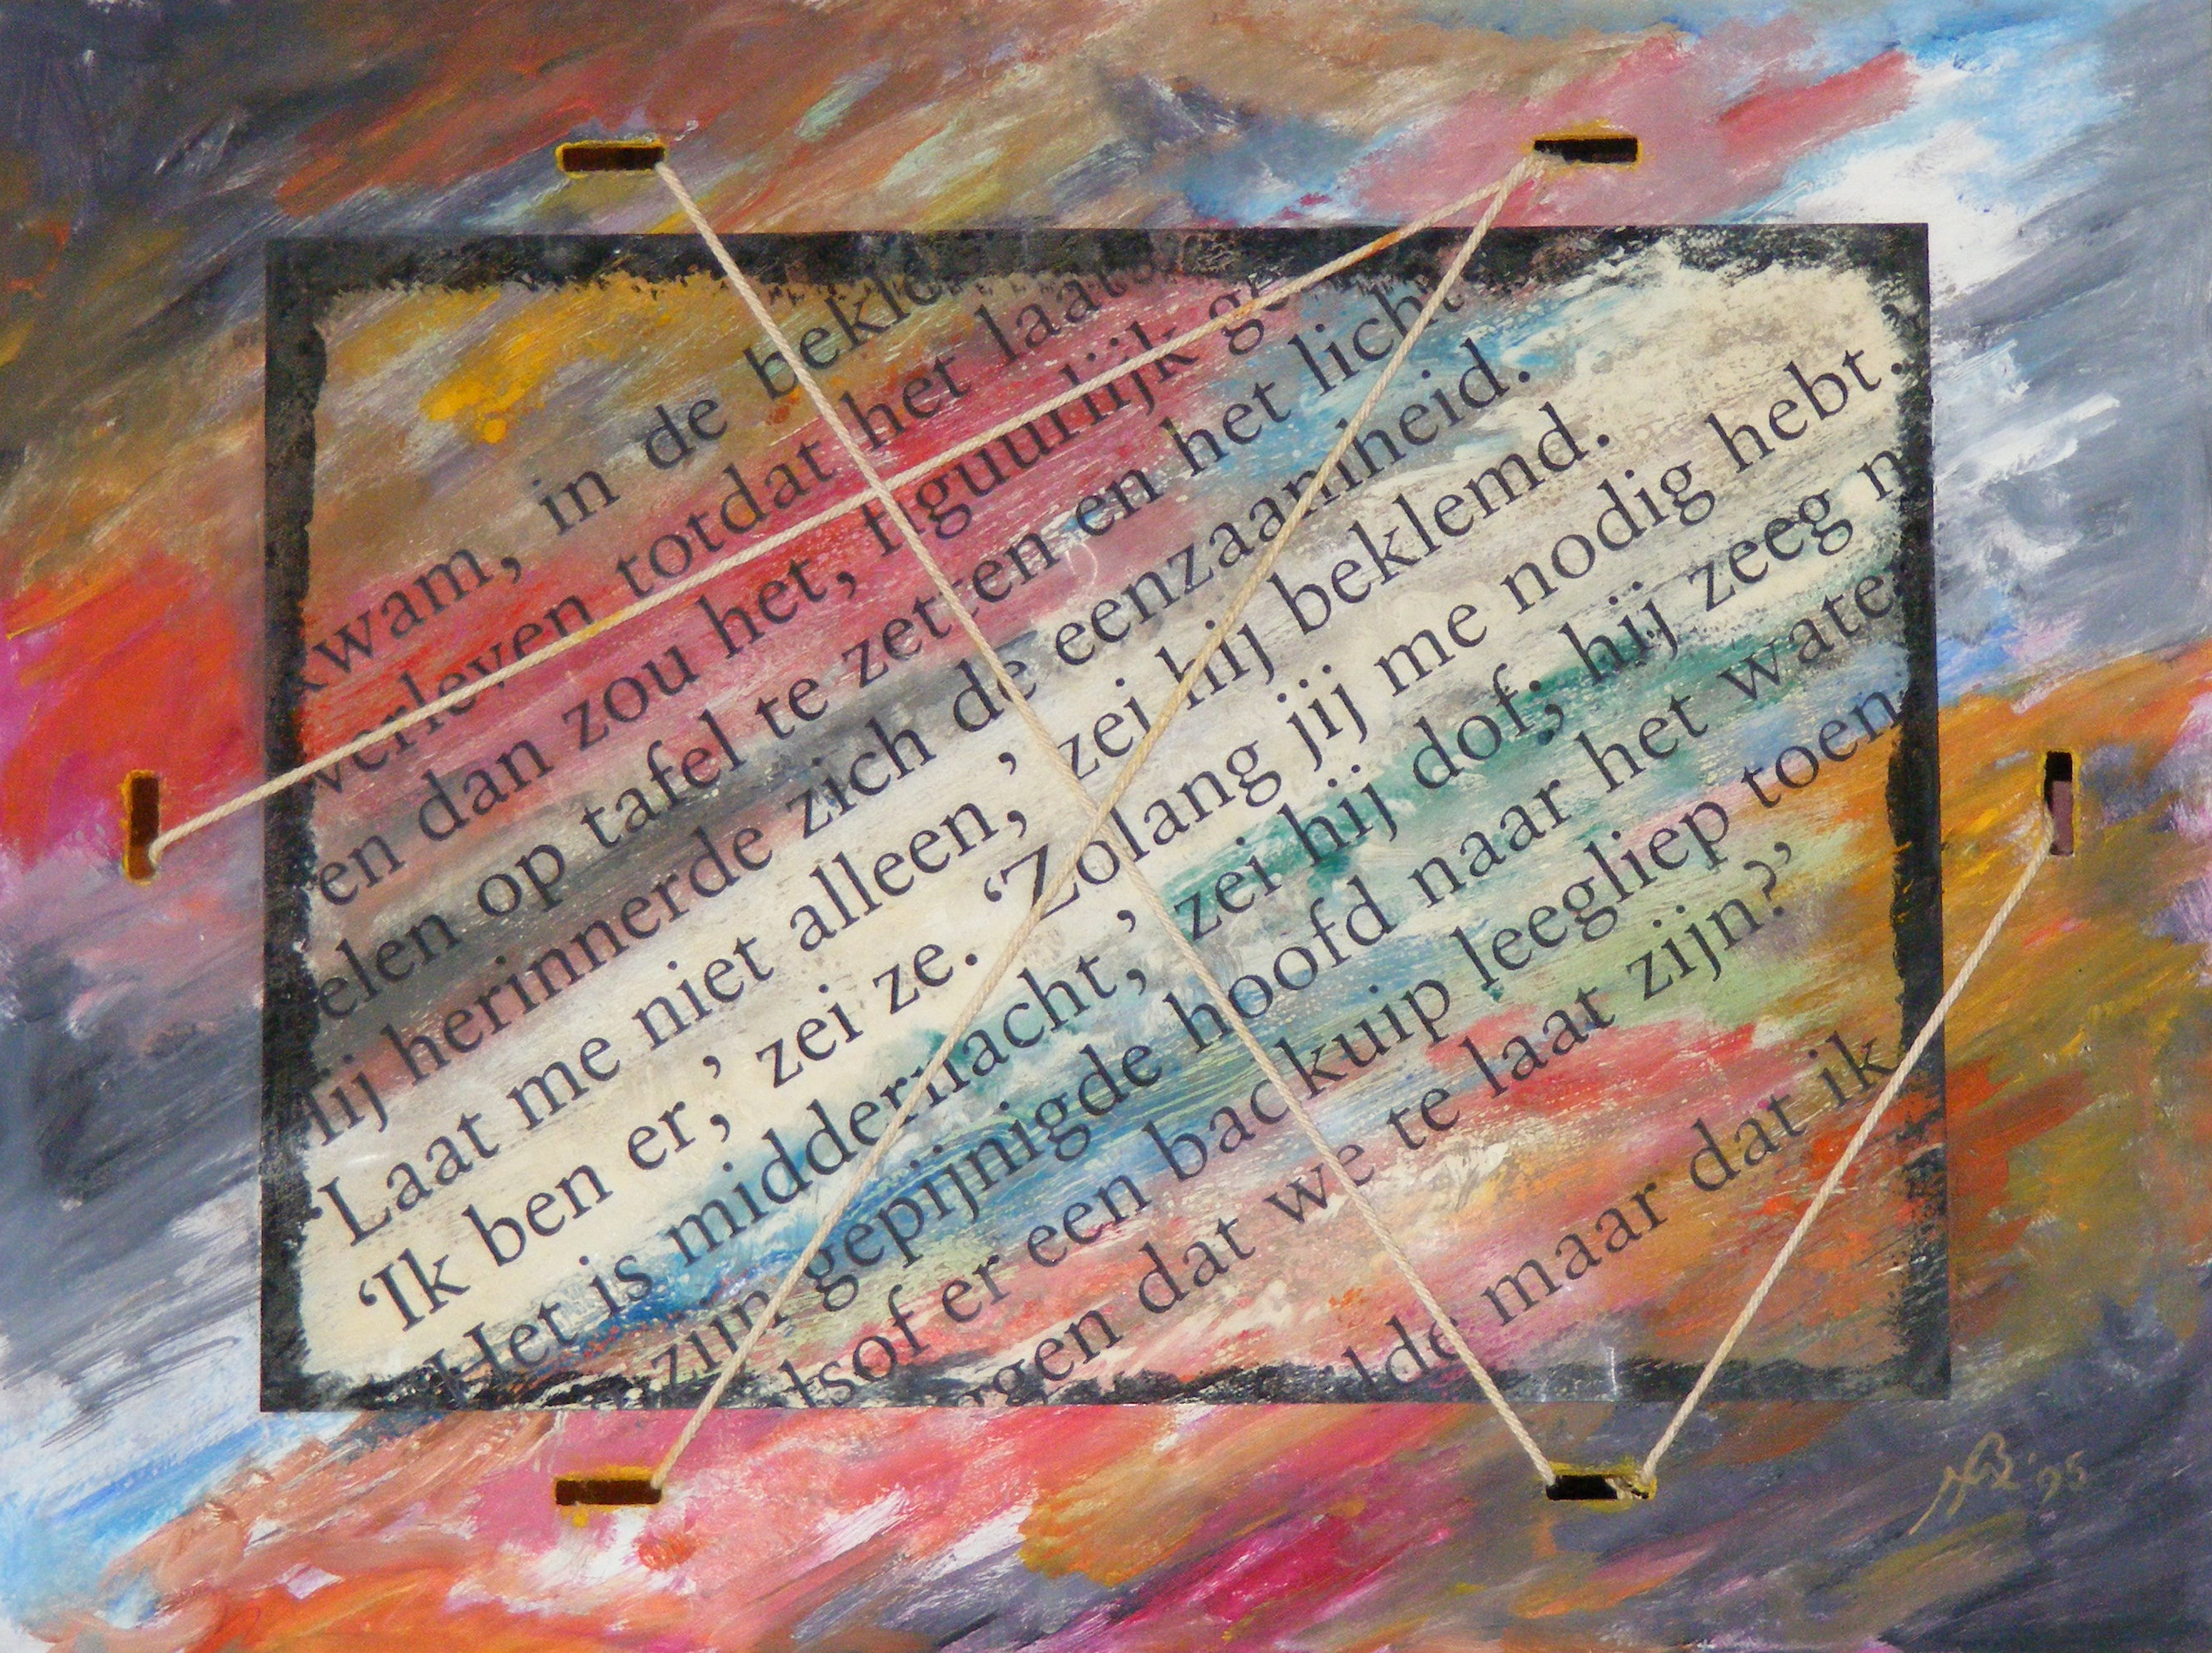 kwam, in de bekle
verleven totdat het laats
en dan zou het, figuurlijk ge
elen op tafel te zetten en het licht
Hij herinnerde zich de eenzaamheid.
‘Laat me niet alleen,’ zei hij beklemd.
‘Ik ben er,’ zei ze. ‘Zolang jij me nodig hebt.
Het is middernacht,’ zei hij dof; hij zeeg n
zijn gepijnigde hoofd naar het wate
lsof er een backuip leegliep toen
rgen dat we te laat zijn?’
lde maar dat ik
'95